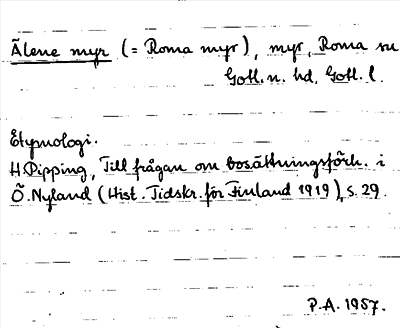 Ãlene myr (= Roma myr), myr, Roma sn
Gotl. n. hd, Gotl. l.
Etymologi.
H. Pipping, Till frågan om bosättningsförh. i
Ö. Nyland (Hist. Tidskr. för Finland 1919), s. 29.
P.A. 1957.